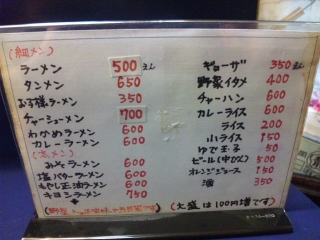 (細メン)
ラーメン 500 えん
タンメン 650
お子様ラーメン 350
チャーシューメン 700
わかめラーメン 600
カレーラーメン 600
みそラーメン 600
塩バターラーメン 600
もやし正油ラーメン 600
キヨシラーメン 750
ギョーザ 350 えん
野菜イタメ 400
チャーハン 600
カレーライス 600
ライス 200
小ライス 150
ゆで玉子 50
ビール(中びん) 500
オレンジジュース 150
酒 350
(大盛は100円増です)